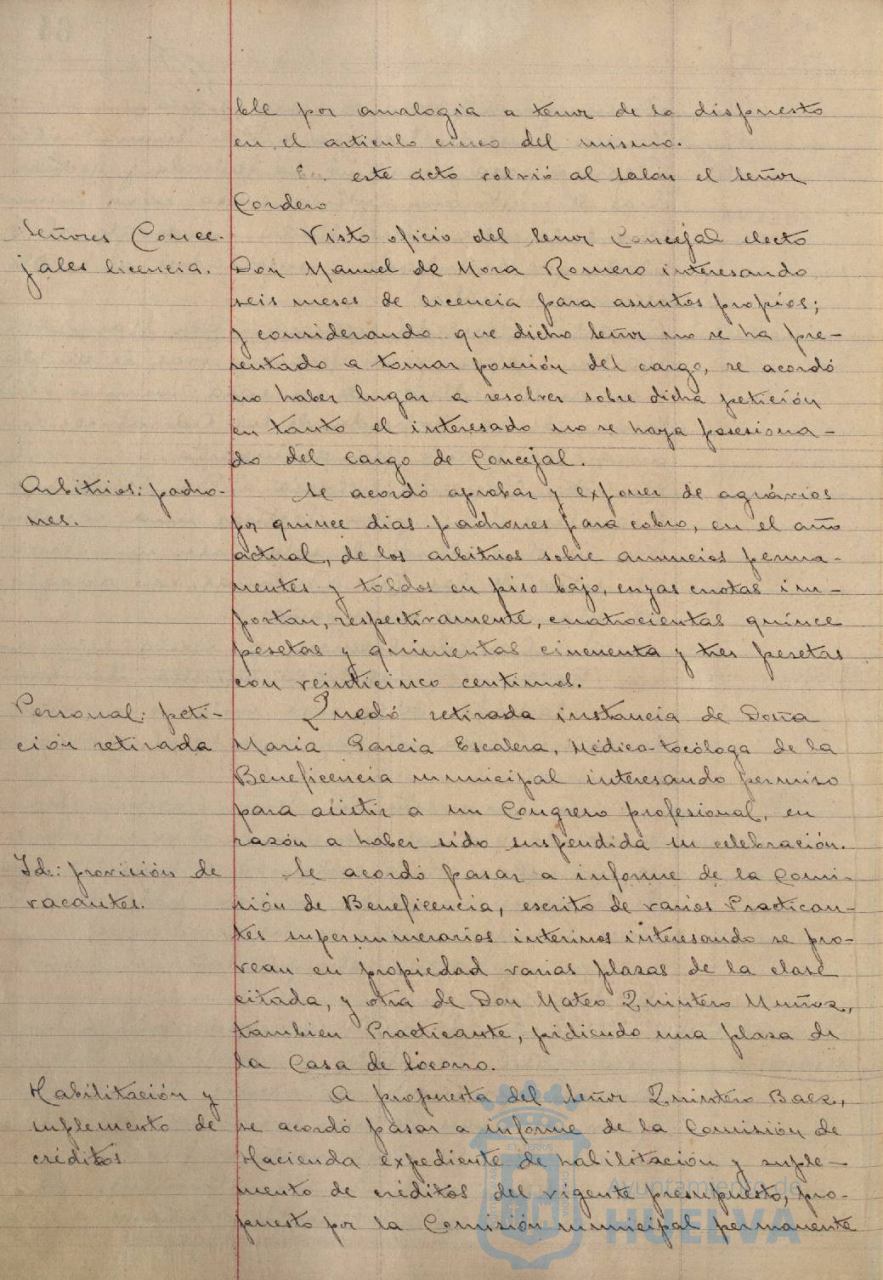 ble por analogia a tenor de lo dispuesto
en el articulo cinco del mismo.
En este acto volvió al salón el Señor
Cordero
Señores Conce-
jales licencia.
Visto oficio del Señor Concejal electo
Don Manuel de Mora Romero interesando
seis meses de licencia para asuntos propios;
y considerando que dicho Señor no se ha pre-
sentado a tomar posesión del cargo, se acordó
no haber lugar a resolver sobre dicha petición
en tanto el interesado no se haya posesiona-
do del cargo de Concejal.
Arbitrios: padro-
nes.
Se acordó aprobar y exponer de agrávios
por quince dias padrones para cobro, en el año
actual, de los arbitrios sobre anuncios perma-
nentes y toldos en piso bajo, cuyas cuotas im-
portan, respectivamente, cuatrocientas quince
pesetas y quinientas cincuenta y tres pesetas
con veinticinco centimos.
Personal: peti-
ción retirada
Quedó retirada instancia de Doña
Maria Garcia Escalera, Médico-tocóloga de la
Beneficencia municipal interesando permiso
para asistir a un Congreso profesional, en
razón a haber sido suspendida su celebración.
Id: provisión de
vacantes.
Se acordó pasar a informe de la Comi-
sión de Beneficencia, escrito de varios Practican-
tes supernumerarios interinos interesando se pro-
vean en propiedad varias plazas de la clase
citada, y otra de Don Mateo Quintero Muñoz,
tambien Practicante, pidiendo una plaza de
la Casa de Socorro.
Habilitación y
suplemento de
créditos
A propuesta del Señor Quintero Baez,
se acordó pasar a informe de la Comisión de
Hacienda expediente de habilitación y suple-
mento de créditos del vigente presupuesto, pro-
puesto por la Comisión municipal permanente
Ayuntamiento de
HUELVA